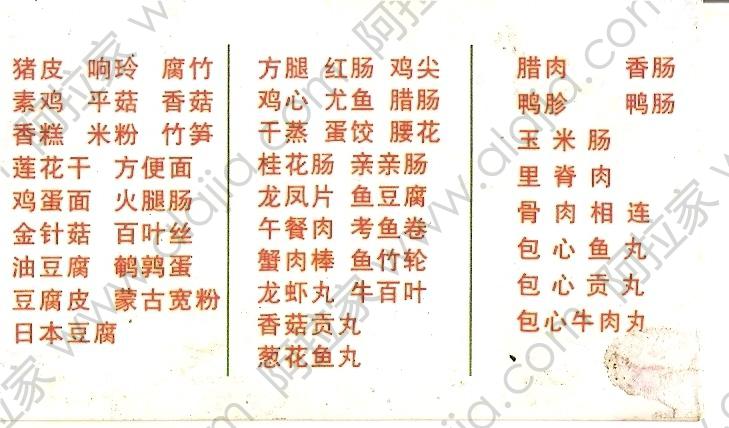 猪皮 响玲 腐竹
素鸡 平菇 香菇
香糕 米粉 竹笋
莲花干 方便面
鸡蛋面 火腿肠
金针菇 百叶丝
油豆腐 鹌鹑蛋
豆腐皮 蒙古宽粉
日本豆腐
方腿 红肠 鸡尖
鸡心 尤鱼 腊肠
干蒸 蛋饺 腰花
桂花肠 亲亲肠
龙凤片 鱼豆腐
午餐肉 考鱼卷
蟹肉棒 鱼竹轮
龙虾丸 牛百叶
香菇贡丸
葱花鱼丸
腊肉 香肠
鸭胗 鸭肠
玉米肠
里脊肉
骨肉相连
包心鱼丸
包心贡丸
包心牛肉丸
阿拉家 www.alajia.com